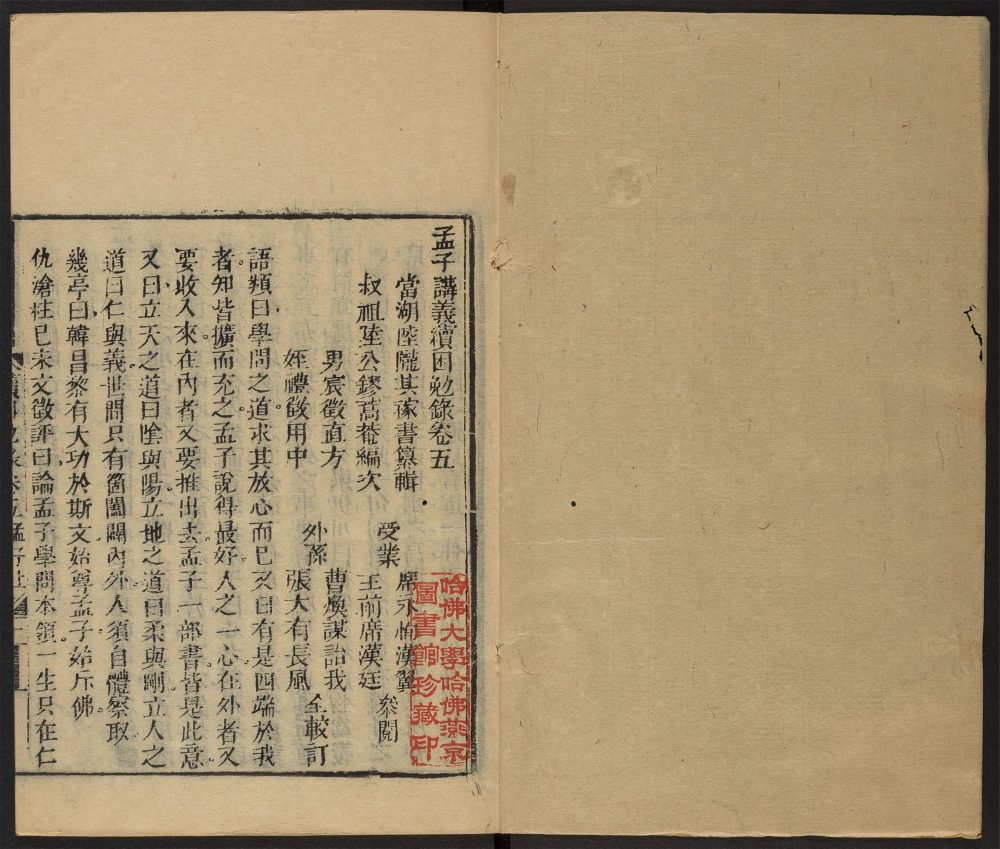 孟子講義續困勉錄卷五
當湖陸隴其稼書纂輯
受業
席永恂漢翼
王前席漢廷
參閱
叔祖陸公鏐蒿菴編次
男宸徵直方
姪禮徵用中
外孫
曹煥謀詒我
張大有長風
仝較訂
語類曰學問之道求其放心而巳又曰有是四端於我
者知皆擴而充之孟子說得最好人之一心在外者又
要收入來在內者又要推出去孟子一部書皆是此意
又曰立天之道曰陰與陽立地之道曰柔與剛立人之
道曰仁與義世間只有箇闔闢內外人須自體察取
幾亭曰韓昌黎有大功於斯文始尊孟子始斥佛
仇滄柱巳未文徵評曰論孟子學問本領一生只在仁
哈佛大學哈佛燕京
圖書館珍藏印